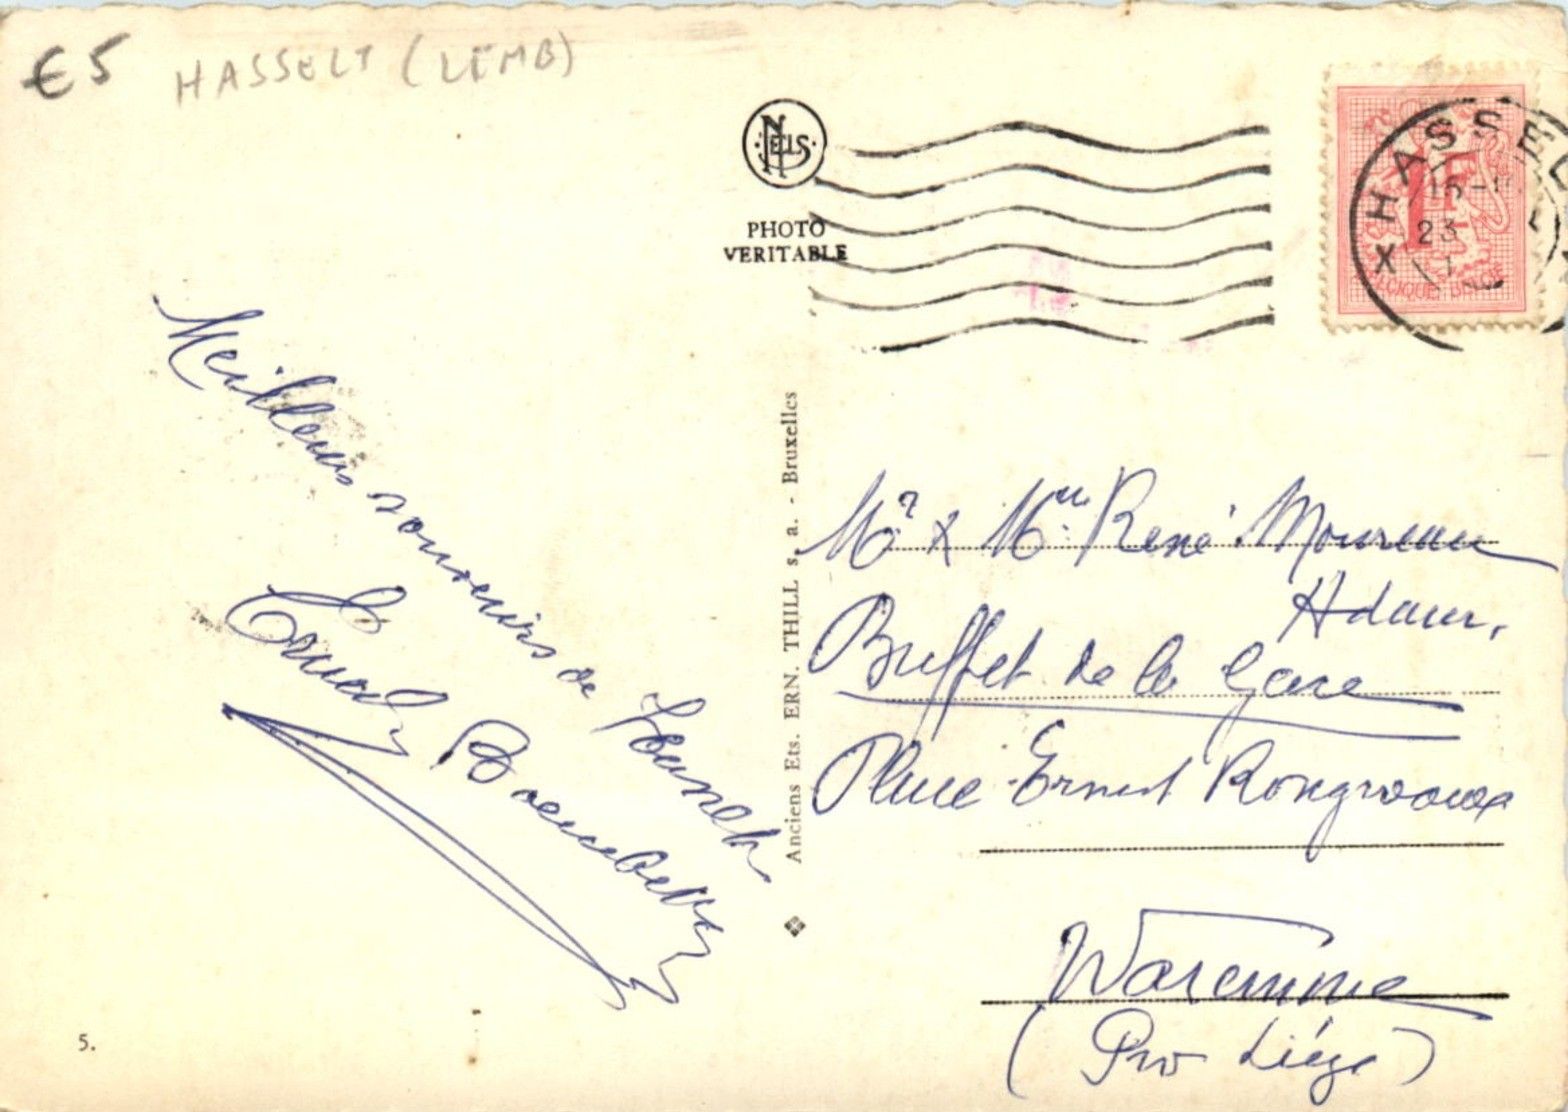 €5 HASSELT (LIMB)
NELS
PHOTO
VERITABLE
HASSEL
23
1F
BELGIQUE BELGIE
Meilleurs souvenirs de Hasselt
Anciens Ets. ERN. THILL s. a. - Bruxelles
Mr & Mme René Moureau
Adam.
Buffet de la Gare
Place Ernest Rongvaux
Waremme
(Prov Liége)
5.